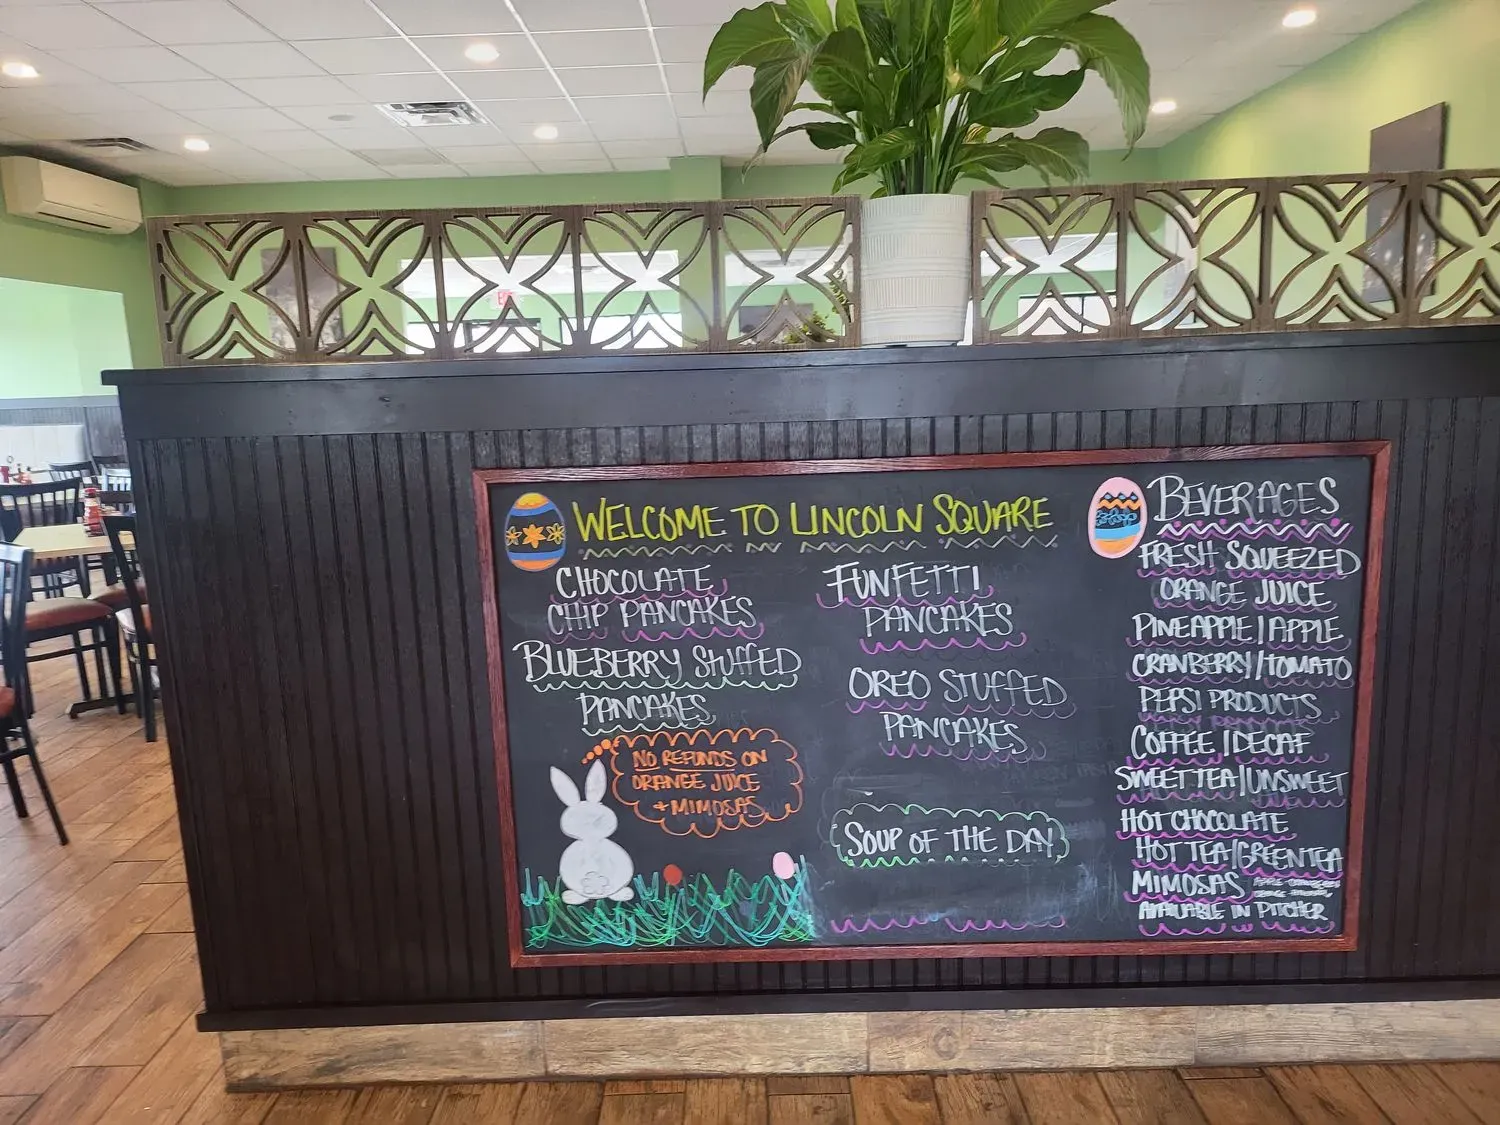 WELCOME TO LINCOLN SQUARE
CHOCOLATE
CHIP PANCAKES
BLUEBERRY STUFFED
PANCAKES
NO REFUNDS ON
ORANGE JUICE
+ MIMOSAS
FUNFETTI
PANCAKES
OREO STUFFED
PANCAKES
SOUP OF THE DAY
BEVERAGES
FRESH SQUEEZED
ORANGE JUICE
PINEAPPLE/APPLE
CRANBERRY/TOMATO
PEPSI PRODUCTS
COFFEE/DECAF
SWEET TEA/UNSWEET
HOT CHOCOLATE
HOT TEA/GREEN TEA
MIMOSAS
AVAILABLE IN PITCHER